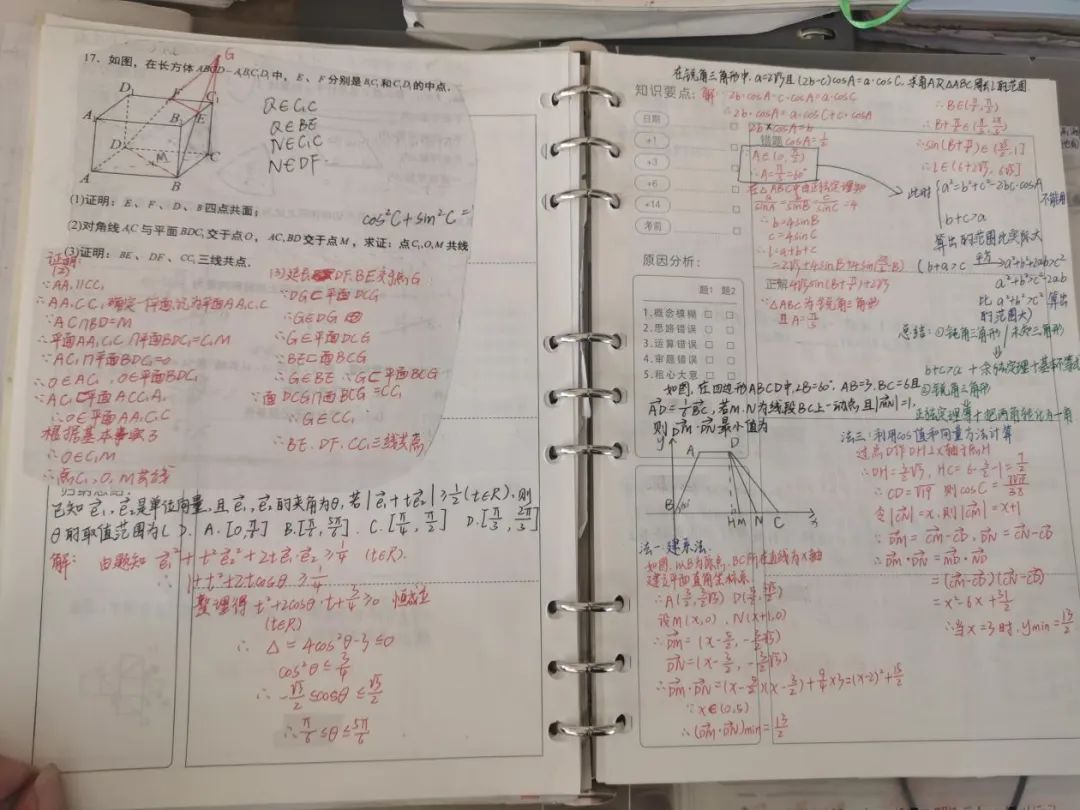 17. 如图，在长方体ABCD-A₁B₁C₁D₁中，E、F分别是B₁C₁和C₁D₁的中点.
G
D₁ F C₁
A₁ B₁ E
D M C
A B
Q∈C₁C
Q∈BE
N∈C₁C
N∈DF
(1)证明：E、F、D、B四点共面；
cos²C+sin²C=
(2)对角线A₁C与平面BDC₁交于点O，AC,BD交于点M，求证：点C₁,O,M共线
(3)证明：BE、DF、CC₁三线共点.
证明:
(2)
∵AA₁∥CC₁
∴AA₁CC₁确定一个平面,记为平面AA₁C₁C
∵AC∩BD=M
∴平面AA₁C₁C∩平面BDC₁=C₁M
∵AC₁∩平面BDC₁=O
∴O∈AC₁，O∈平面BDC₁
∴AC₁⊂平面ACC₁A₁
∴O∈平面AA₁C₁C
根据基本事实3
∴O∈C₁M
∴点C₁、O、M共线
(3)延长DF、BE交于点G
∵DG⊂平面DCG
∴G∈DG
∴G∈平面DCG
∵BE⊂面BCG
∴G∈BE ∴G⊂平面BCG
∵面DCG∩面BCG=CC₁
∴G∈CC₁
∴BE、DF、CC₁三线共点
归纳总结:
已知e₁、e₂是单位向量，且e₁、e₂的夹角为θ，若|e₁+te₂|≥1/2(t∈R)，则
θ的取值范围为( D. A.[0,π/6] B.[π/6,5π/6] C.[π/4,π/2] D.[π/3,2π/3]
解: 由题知 e₁²+t²e₂²+2te₁·e₂≥1/4 (t∈R).
∴1+t²+2tcosθ≥1/4
整理得 t²+2cosθ·t+3/4≥0 恒成立
(t∈R)
∴Δ=4cos²θ-3≤0
cos²θ≤3/4
∴-√3/2≤cosθ≤√3/2
∴π/6≤θ≤5π/6
在锐角三角形中，a=2√3且(2b-c)cosA=a·cosC，求角A及△ABC周长l的范围.
知识要点:
解: 2b·cosA-c·cosA=a·cosC
∴2b·cosA=a·cosC+c·cosA
2b×cosA=b
日期
+1
+3
+6
+14
考前
错题
cosA=1/2
∵A∈(0,π/2)
∴A=π/3=60°
在△ABC中由正弦定理知
a/sinA=b/sinB=c/sinC=4
∴b=4sinB
c=4sinC
∴l=a+b+c
=2√3+4sinB+4sin(2π/3-B)
正解
=4√3sin(B+π/6)+2√3
∵△ABC为锐角三角形
且A=π/3
∴B∈(π/6,π/2)
∴B+π/6∈(π/3,2π/3)
∴sin(B+π/6)∈(√3/2,1]
∴l∈(6+2√3,6√3]
此时{a²=b²+c²-2bc·cosA
不能用
b+c>a
算出的范围比实际大
(b+a>c 平方→a²+b²+2ab>c²
a²+b²>c²-2ab
比a²+b²>c²算出
的范围大)
总结: ①钝角三角形/未知三角形
⇓
b+c>a+余弦定理+基本不等式
②锐角三角形
正弦定理等+把两角转化为一角
原因分析:
题1 题2
1.概念模糊 □ □
2.思路错误 □ □
3.运算错误 □ □
4.审题错误 □ □
5.粗心大意 □ □
如图，在四边形ABCD中，∠B=60°，AB=3，BC=6且
AD=1/6BC，若M、N为线段BC上一动点，且|MN|=1，
则DM·DN最小值为
y
A D
B 60° H M N C x
法一：建系法.
如图，以B为原点，BC所在直线为x轴
建立平面直角坐标系
∴A(3/2,3/2√3) D(5/2,3√3/2)
设M(x,0)，N(x+1,0)
∴DM=(x-5/2,-3/2√3)
DN=(x-3/2,-3/2√3)
∴DM·DN=(x-5/2)(x-3/2)+9/4×3=(x-2)²+13/2
∵x∈(0,5)
∴(DM·DN)min=13/2
法三:利用cos值和向量方法计算
过点D作DH⊥x轴于点H
∴DH=3/2√3，HC=6-3/2-1=7/2
∴CD=√19 则cosC=7√19/38
令|CN|=x，则|CM|=x+1
∵DM=CM-CD，DN=CN-CD
∴DM·DN=MD·ND
=(CM-CD)(CN-CD)
=x²-6x+31/2
∴当x=3时，ymin=13/2